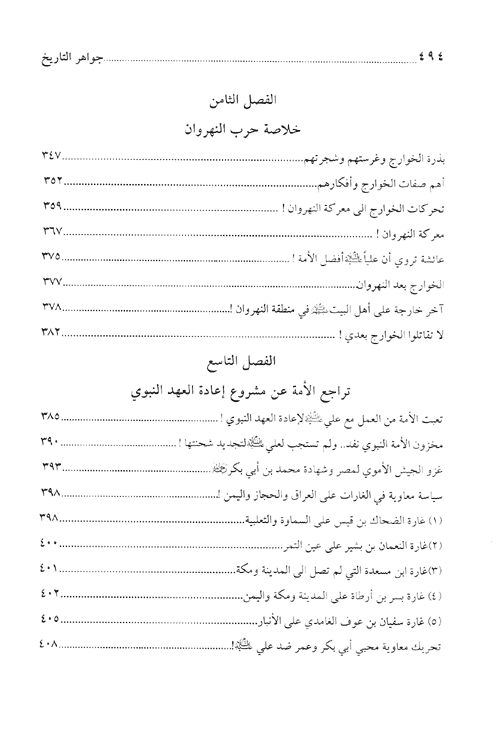 ٤٩٤ ........ جواهر التاريخ
الفصل الثامن
خلاصة حرب النهروان
بذرة الخوارج وغرستهم وشجرتهم ........ ٣٤٧
أهم صفات الخوارج وأفكارهم ........ ٣٥٢
تحركات الخوارج الى معركة النهروان ! ........ ٣٥٩
معركة النهروان ! ........ ٣٦٧
عائشة تروي أن علياً أفضل الأمة ! ........ ٣٧٥
الخوارج بعد النهروان ........ ٣٧٧
آخر خارجة على أهل البيت في منطقة النهروان ! ........ ٣٧٨
لا تقاتلوا الخوارج بعدي ! ........ ٣٨٢
الفصل التاسع
تراجع الأمة عن مشروع إعادة العهد النبوي
تعبت الأمة من العمل مع علي لإعادة العهد النبوي ! ........ ٣٨٥
مخزون الأمة النبوي نفد.. ولم تستجب لعلي لتجديد شحنتها ! ........ ٣٩٠
غزو الجيش الأموي لمصر وشهادة محمد بن أبي بكر ........ ٣٩٣
سياسة معاوية في الغارات على العراق والحجاز واليمن ! ........ ٣٩٨
(١) غارة الضحاك بن قيس على السماوة والثعلبية ........ ٣٩٨
(٢)غارة النعمان بن بشير على عين التمر ........ ٤٠٠
(٣)غارة ابن مسعدة التي لم تصل الى المدينة ومكة ........ ٤٠١
(٤) غارة بسر بن أرطاة على المدينة ومكة واليمن ........ ٤٠٢
(٥) غارة سفيان بن عوف الغامدي على الأنبار ........ ٤٠٥
تحريك معاوية محبي أبي بكر وعمر ضد علي ! ........ ٤٠٨